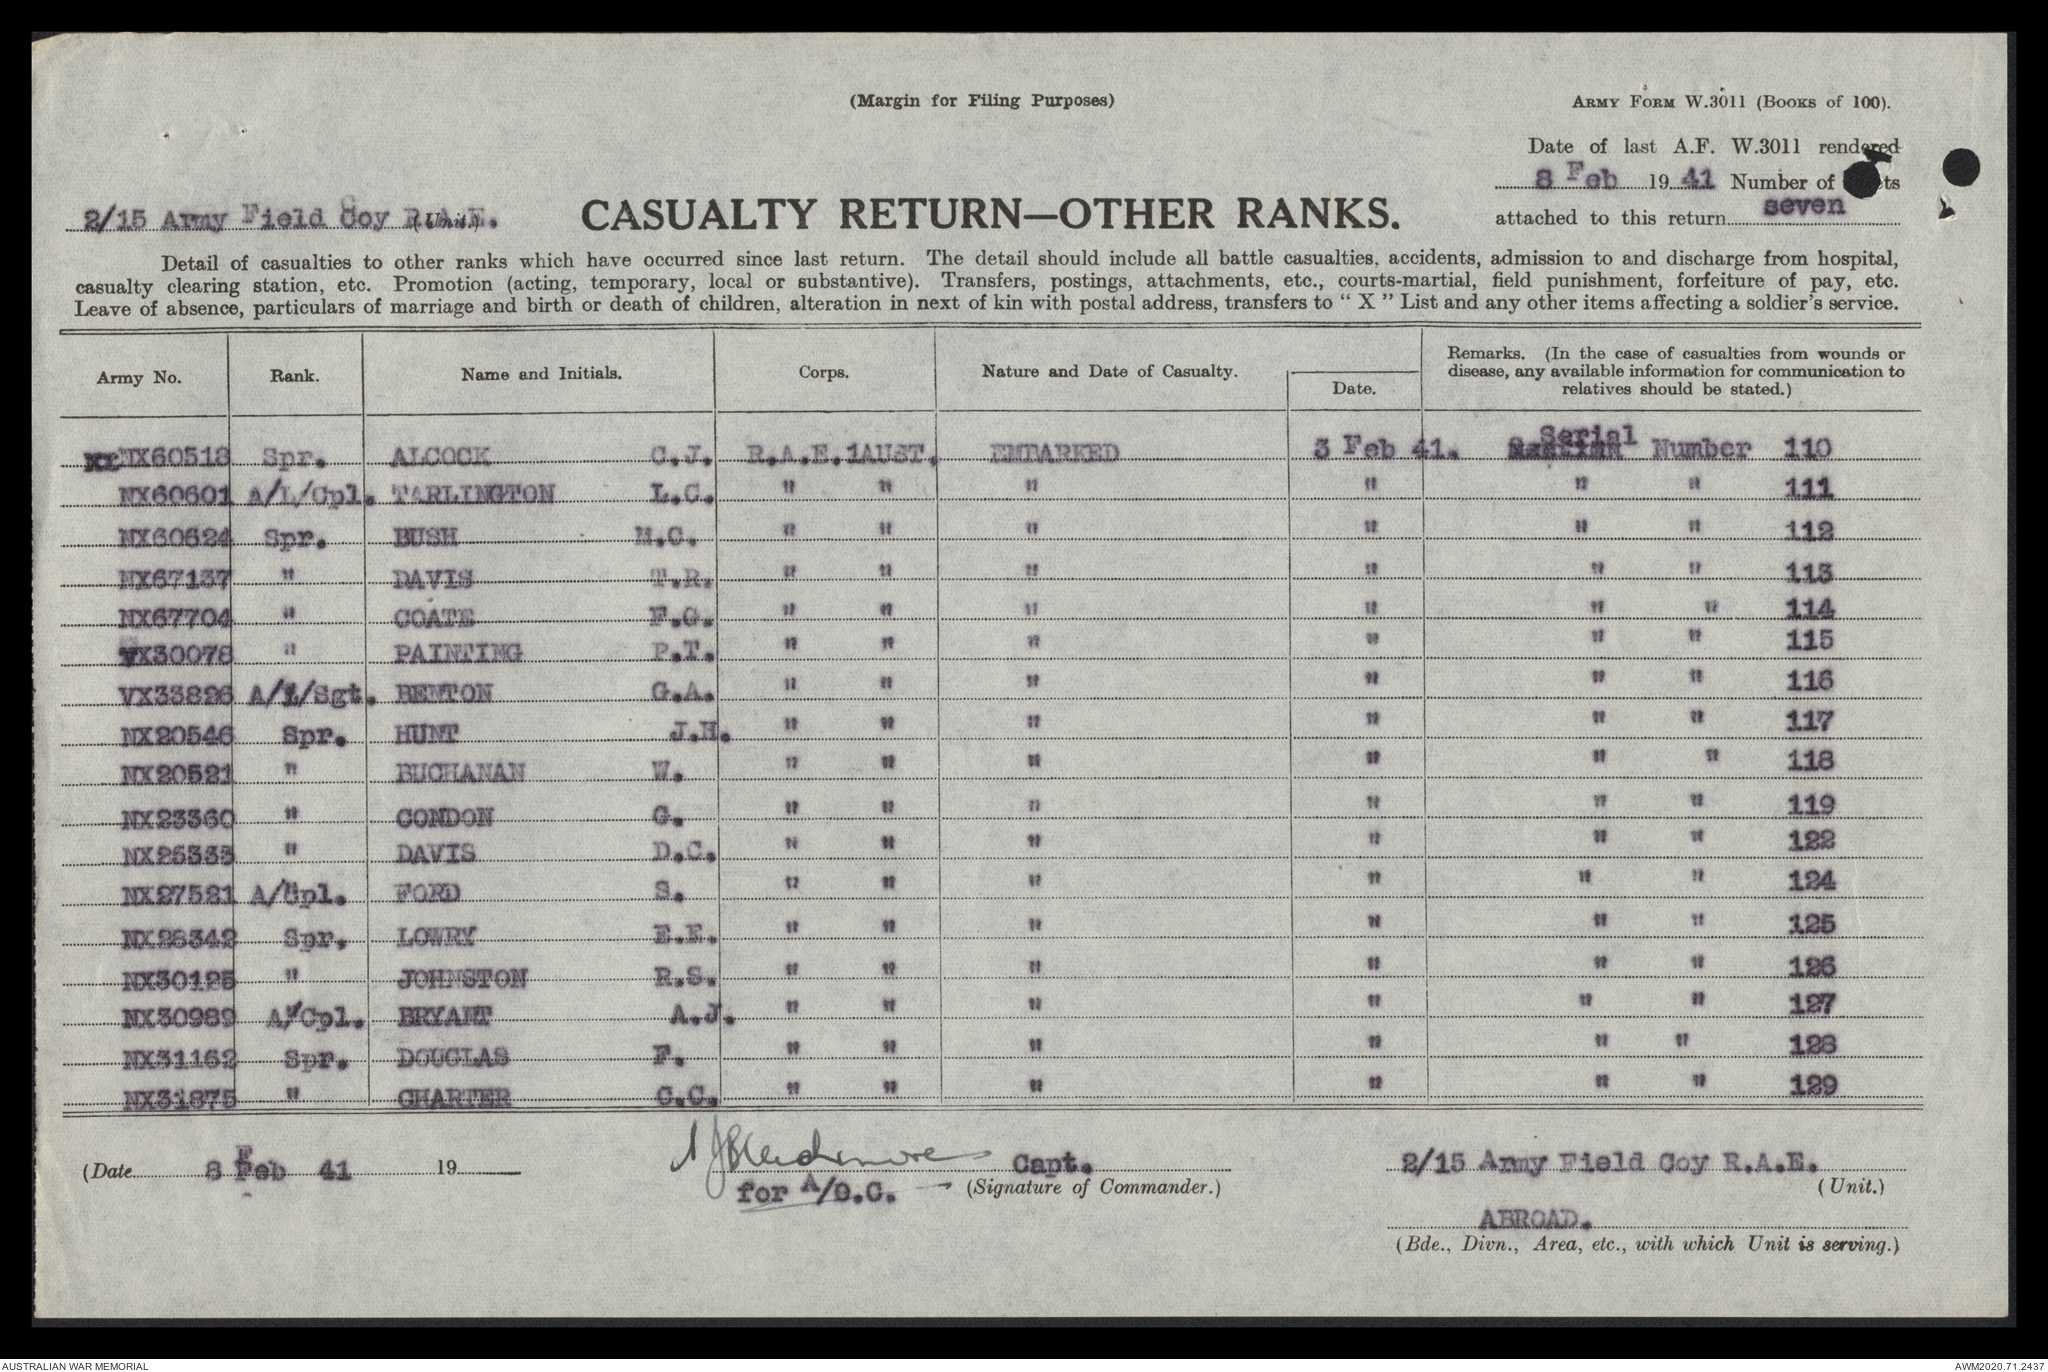 (Margin for Filing Purposes)
ARMY FORM W.3011 (BOOKS of 100).
Date of last A.F. W.3011 rendered
8 Feb 19 41 Number of
2/15 Army Field Coy R.A.E. (Unit.)
CASUALTY RETURN—OTHER RANKS.
attached to this return seven
Detail of casualties to other ranks which have occurred since last return. The detail should include all battle casualties, accidents, admission to and discharge from hospital,
casualty clearing station, etc. Promotion (acting, temporary, local or substantive). Transfers, postings, attachments, etc., courts-martial, field punishment, forfeiture of pay, etc.
Leave of absence, particulars of marriage and birth or death of children, alteration in next of kin with postal address, transfers to " X " List and any other items affecting a soldier's service.
Army No. Rank. Name and Initials. Corps. Nature and Date of Casualty. Date. Remarks. (In the case of casualties from wounds or
disease, any available information for communication to
relatives should be stated.)
NX60518 Spr. ALCOCK C.J. R.A.E. 1AUST. EMBARKED 3 Feb 41. Serial Number 110
NX60601 A/L/Cpl. TARLINGTON L.C. " " " " " " 111
NX60624 Spr. BUSH M.C. " " " " " " 112
NX67137 " DAVIS T.R. " " " " " " 113
NX67704 " COATE F.G. " " " " " " 114
VX30078 " PAINTING P.T. " " " " " " 115
VX33826 A/L/Sgt. BENTON G.A. " " " " " " 116
NX20546 Spr. HUNT J.H. " " " " " " 117
NX20521 " BUCHANAN W. " " " " " " 118
NX23360 " CONDON G. " " " " " " 119
NX25333 " DAVIS D.C. " " " " " " 122
NX27521 A/Cpl. FORD S. " " " " " " 124
NX28342 Spr. LOWRY E.E. " " " " " " 125
NX30125 " JOHNSTON R.S. " " " " " " 126
NX30989 A/Cpl. BRYANT A.J. " " " " " " 127
NX31162 Spr. DOUGLAS F. " " " " " " 128
NX31875 " CHARTER C.C. " " " " " " 129
(Date 8 Feb 41 19
Capt.
for A/O.C. (Signature of Commander.)
2/15 Army Field Coy R.A.E.
(Unit.)
ABROAD.
(Bde., Divn., Area, etc., with which Unit is serving.)
AUSTRALIAN WAR MEMORIAL
AWM2020.71.2437